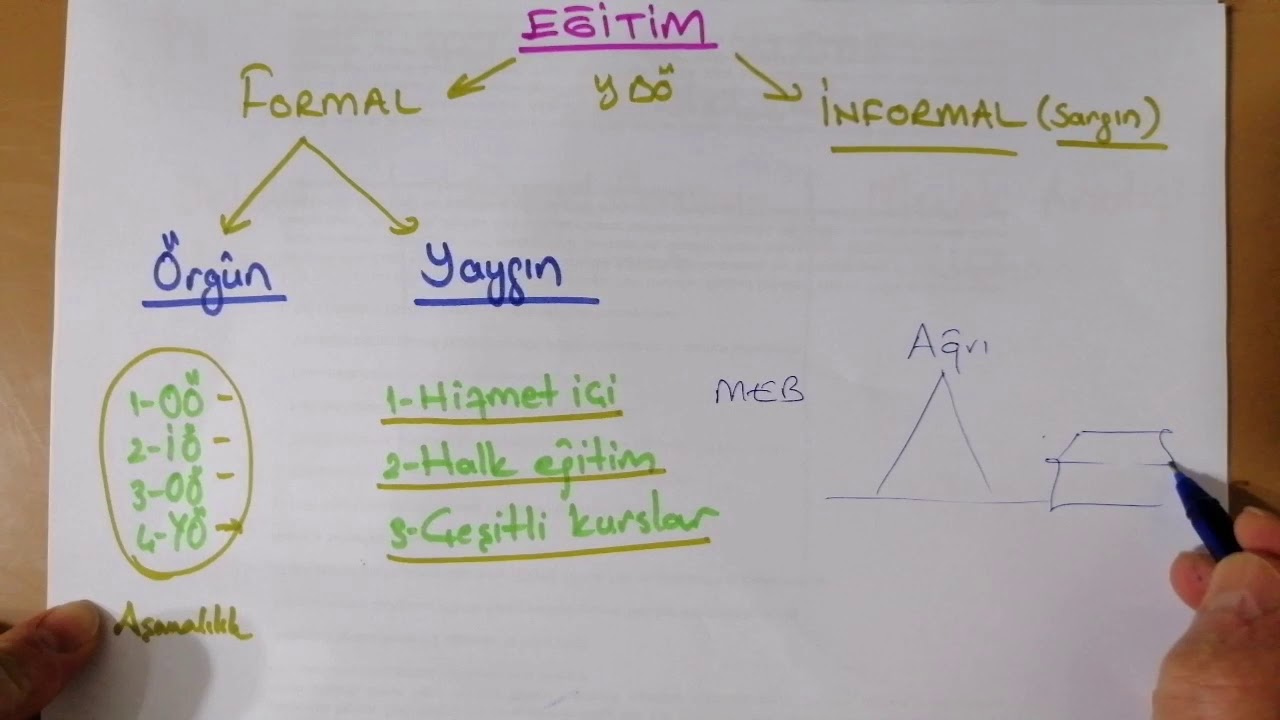 EĞİTİM
FORMAL
YDÖ
İNFORMAL (Sargın)
Örgün
Yaygın
1-OÖ
2-İÖ
3-OÖ
4-YÖ
Aşamalılık
1-Hizmet içi
2-Halk eğitim
3-Çeşitli kurslar
MEB
Ağrı